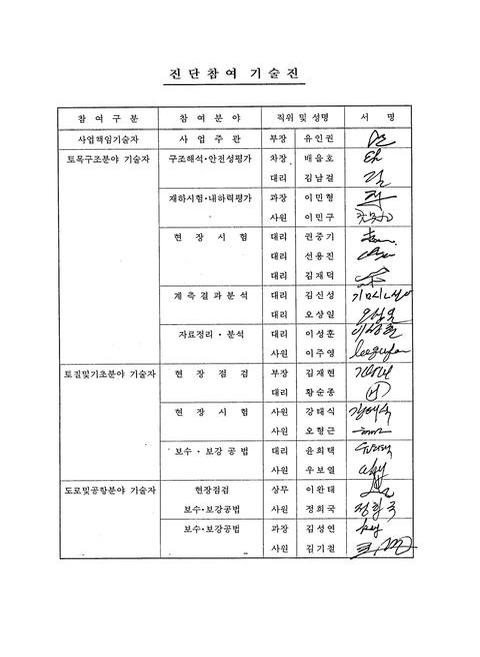 진 단 참 여 기 술 진
참 여 구 분 참 여 분 야 직위 및 성명 서 명
사업책임기술자 사 업 주 관 부장 유인권
토목구조분야 기술자 구조해석·안전성평가 차장 배율호
대리 김남걸
재하시험·내하력평가 과장 이민형
사원 이민구
현 장 시 험 대리 권중기
대리 선용진
대리 김재덕
계 측 결 과 분 석 대리 김신성
대리 오상일
자료정리 · 분석 대리 이성훈 이성훈
사원 이주영
토질및기초분야 기술자 현 장 점 검 부장 김재현
대리 황순종
현 장 시 험 사원 강태식
사원 오형근
보수 · 보강 공 법 대리 윤희택
사원 우보일
도로및공항분야 기술자 현장점검 상무 이완태
보수·보강공법 사원 정희국 정희국
보수·보강공법 과장 김성연
사원 김기철